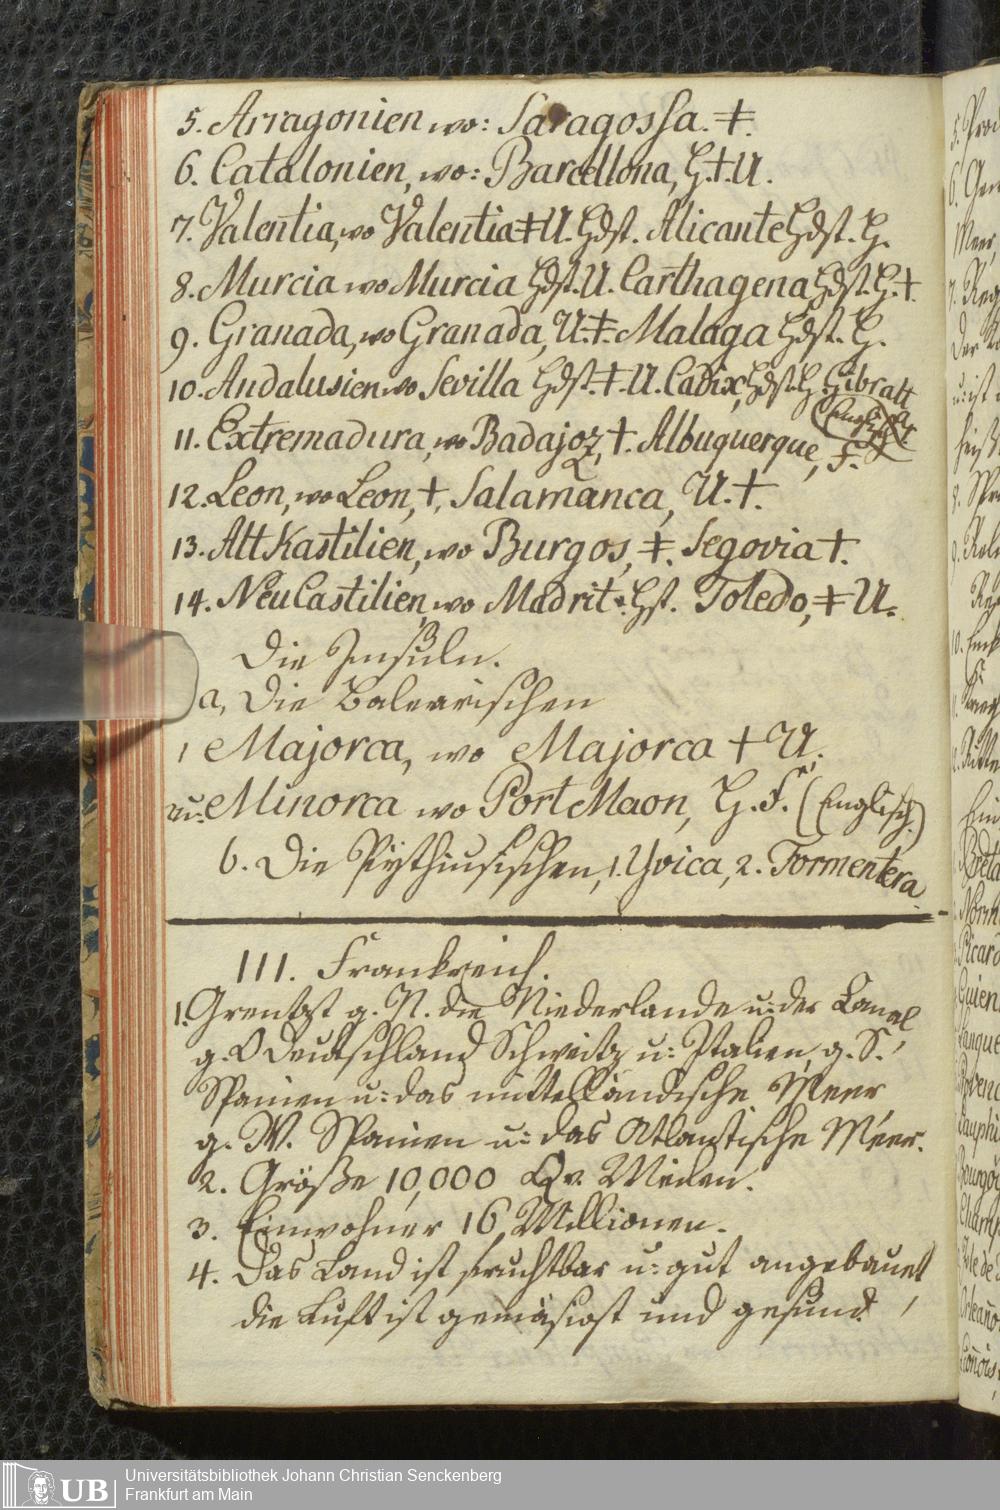 5. Arragonien wo: Saragossa. ‡.
6. Catalonien, wo: Barcellona, H.†.U.
7. Valentia, wo Valentia‡U. Hdst. Alicante Hdst. H.
8. Murcia wo Murcia Hdst. U. Carthagena Hdst. H.†.
9. Granada, wo Granada, U.‡. Malaga Hdst. H.
10. Andalusien wo Sevilla Hdst.‡.U. Cadix, Hdst. H. Gibraltar
(Englisch)
11. Extremadura, wo Badajoz, †. Albuquerque, F.
12. Leon, wo Leon, †, Salamanca, U.†.
13. Alt Kastilien, wo Burgos, ‡. Segovia †.
14. Neu Castilien, wo Madrit. Hst. Toledo, ‡ U.
Die Insuln.
a, Die Balearischen
1 Majorca, wo Majorca † U.
u: Minorca wo Port Maon, H. F. (Englisch.)
b. Die Pythiusischen, 1. Yvica, 2. Formentera
III. Frankreich.
1. Grentzt g. N. die Niederlande u: der Canal
g. O Deutschland Schweitz u: Italien, g. S.
Spanien u: das mittelländische Meer
g. W. Spanien u: das Atlantische Meer.
2. Größe 10,000 Qv. Meilen.
3. Einwohner 16 Millionen.
4. Das Land ist fruchtbar u: gut angebauet,
die Luft ist gemäsigt und gesund.
UB
Universitätsbibliothek Johann Christian Senckenberg
Frankfurt am Main